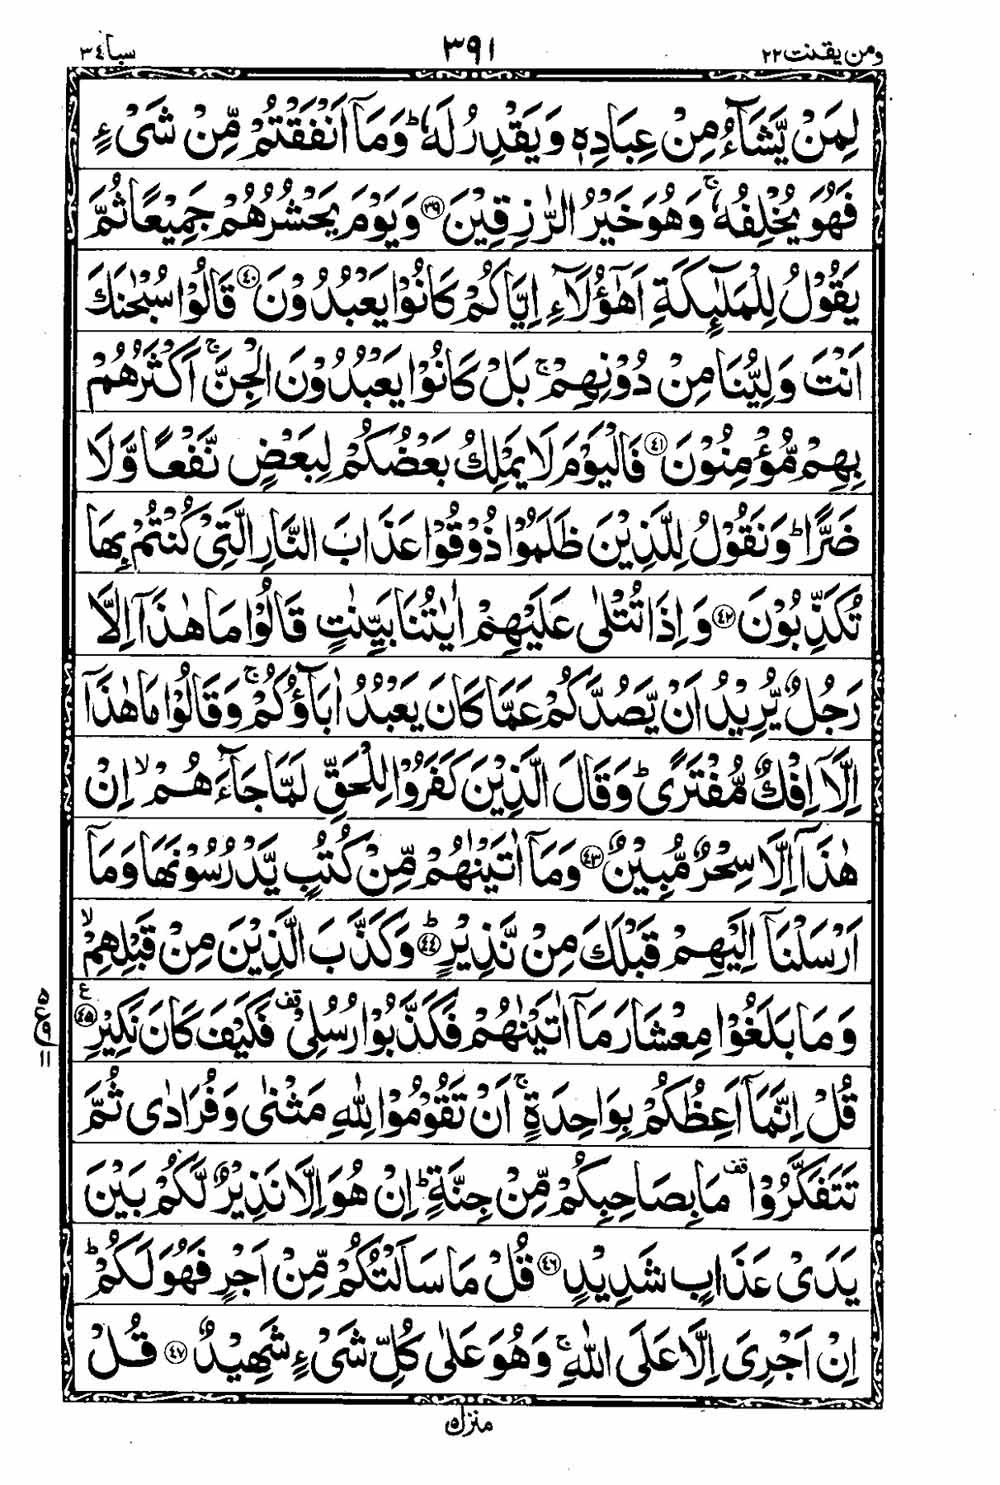 ومن یقنت ٢٢ ٣٩١ سبا ٣٤
لِمَنْ يَّشَآءُ مِنْ عِبَادِهٖ وَيَقْدِرُ لَهٗ ؕ وَمَاۤ اَنْفَقْتُمْ مِّنْ شَیْءٍ
فَهُوَ يُخْلِفُهٗ ۚ وَهُوَ خَيْرُ الرّٰزِقِيْنَ ﴿٣٩﴾ وَيَوْمَ يَحْشُرُهُمْ جَمِيْعًا ثُمَّ
يَقُوْلُ لِلْمَلٰٓئِكَةِ اَهٰٓؤُلَآءِ اِيَّاكُمْ كَانُوْا يَعْبُدُوْنَ ﴿٤٠﴾ قَالُوْا سُبْحٰنَكَ
اَنْتَ وَلِيُّنَا مِنْ دُوْنِهِمْ ۚ بَلْ كَانُوْا يَعْبُدُوْنَ الْجِنَّ ۚ اَكْثَرُهُمْ
بِهِمْ مُّؤْمِنُوْنَ ﴿٤١﴾ فَالْيَوْمَ لَا يَمْلِكُ بَعْضُكُمْ لِبَعْضٍ نَّفْعًا وَّلَا
ضَرًّا ؕ وَنَقُوْلُ لِلَّذِيْنَ ظَلَمُوْا ذُوْقُوْا عَذَابَ النَّارِ الَّتِیْ كُنْتُمْ بِهَا
تُكَذِّبُوْنَ ﴿٤٢﴾ وَاِذَا تُتْلٰى عَلَيْهِمْ اٰيٰتُنَا بَيِّنٰتٍ قَالُوْا مَا هٰذَاۤ اِلَّا
رَجُلٌ يُّرِيْدُ اَنْ يَّصُدَّكُمْ عَمَّا كَانَ يَعْبُدُ اٰبَآؤُكُمْ ۚ وَقَالُوْا مَا هٰذَاۤ
اِلَّاۤ اِفْكٌ مُّفْتَرًى ؕ وَقَالَ الَّذِيْنَ كَفَرُوْا لِلْحَقِّ لَمَّا جَآءَهُمْ ۙ اِنْ
هٰذَاۤ اِلَّا سِحْرٌ مُّبِيْنٌ ﴿٤٣﴾ وَمَاۤ اٰتَيْنٰهُمْ مِّنْ كُتُبٍ يَّدْرُسُوْنَهَا وَمَاۤ
اَرْسَلْنَاۤ اِلَيْهِمْ قَبْلَكَ مِنْ نَّذِيْرٍ ﴿٤٤﴾ؕ وَكَذَّبَ الَّذِيْنَ مِنْ قَبْلِهِمْ ۙ
وَمَا بَلَغُوْا مِعْشَارَ مَاۤ اٰتَيْنٰهُمْ فَكَذَّبُوْا رُسُلِیْ ۟قف فَكَيْفَ كَانَ نَكِيْرِ ﴿٤٥﴾ ع
قُلْ اِنَّمَاۤ اَعِظُكُمْ بِوَاحِدَةٍ ۚ اَنْ تَقُوْمُوْا لِلّٰهِ مَثْنٰى وَفُرَادٰى ثُمَّ
تَتَفَكَّرُوْا قف مَا بِصَاحِبِكُمْ مِّنْ جِنَّةٍ ؕ اِنْ هُوَ اِلَّا نَذِيْرٌ لَّكُمْ بَيْنَ
يَدَیْ عَذَابٍ شَدِيْدٍ ﴿٤٦﴾ قُلْ مَا سَاَلْتُكُمْ مِّنْ اَجْرٍ فَهُوَ لَكُمْ ؕ
اِنْ اَجْرِیَ اِلَّا عَلَى اللّٰهِ ۚ وَهُوَ عَلٰى كُلِّ شَیْءٍ شَهِيْدٌ ﴿٤٧﴾ قُلْ
منزل ٥